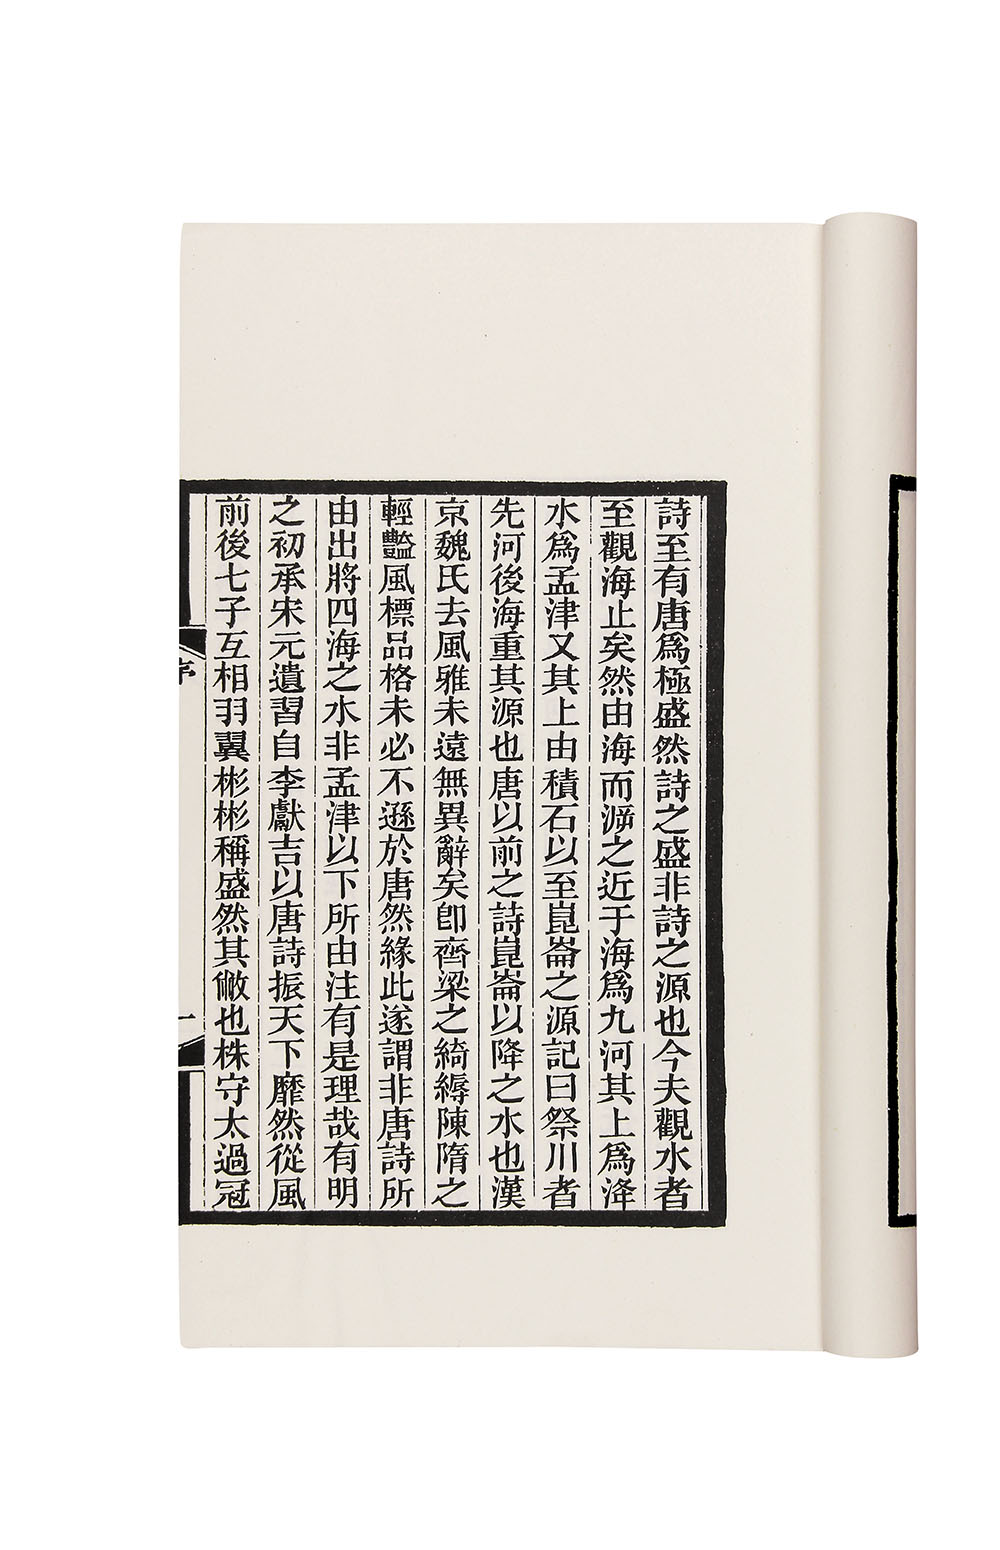 詩至有唐爲極盛然詩之盛非詩之源也今夫觀水者
至觀海止矣然由海而泝之近于海爲九河其上爲洚
水爲孟津又其上由積石以至崑崙之源記曰祭川者
先河後海重其源也唐以前之詩崑崙以降之水也漢
京魏氏去風雅未遠無異辭矣卽齊梁之綺縟陳隋之
輕豔風標品格未必不遜於唐然緣此遂謂非唐詩所
由出將四海之水非孟津以下所由注有是理哉有明
之初承宋元遺習自李獻吉以唐詩振天下靡然從風
前後七子互相羽翼彬彬稱盛然其敝也株守太過冠
序
一